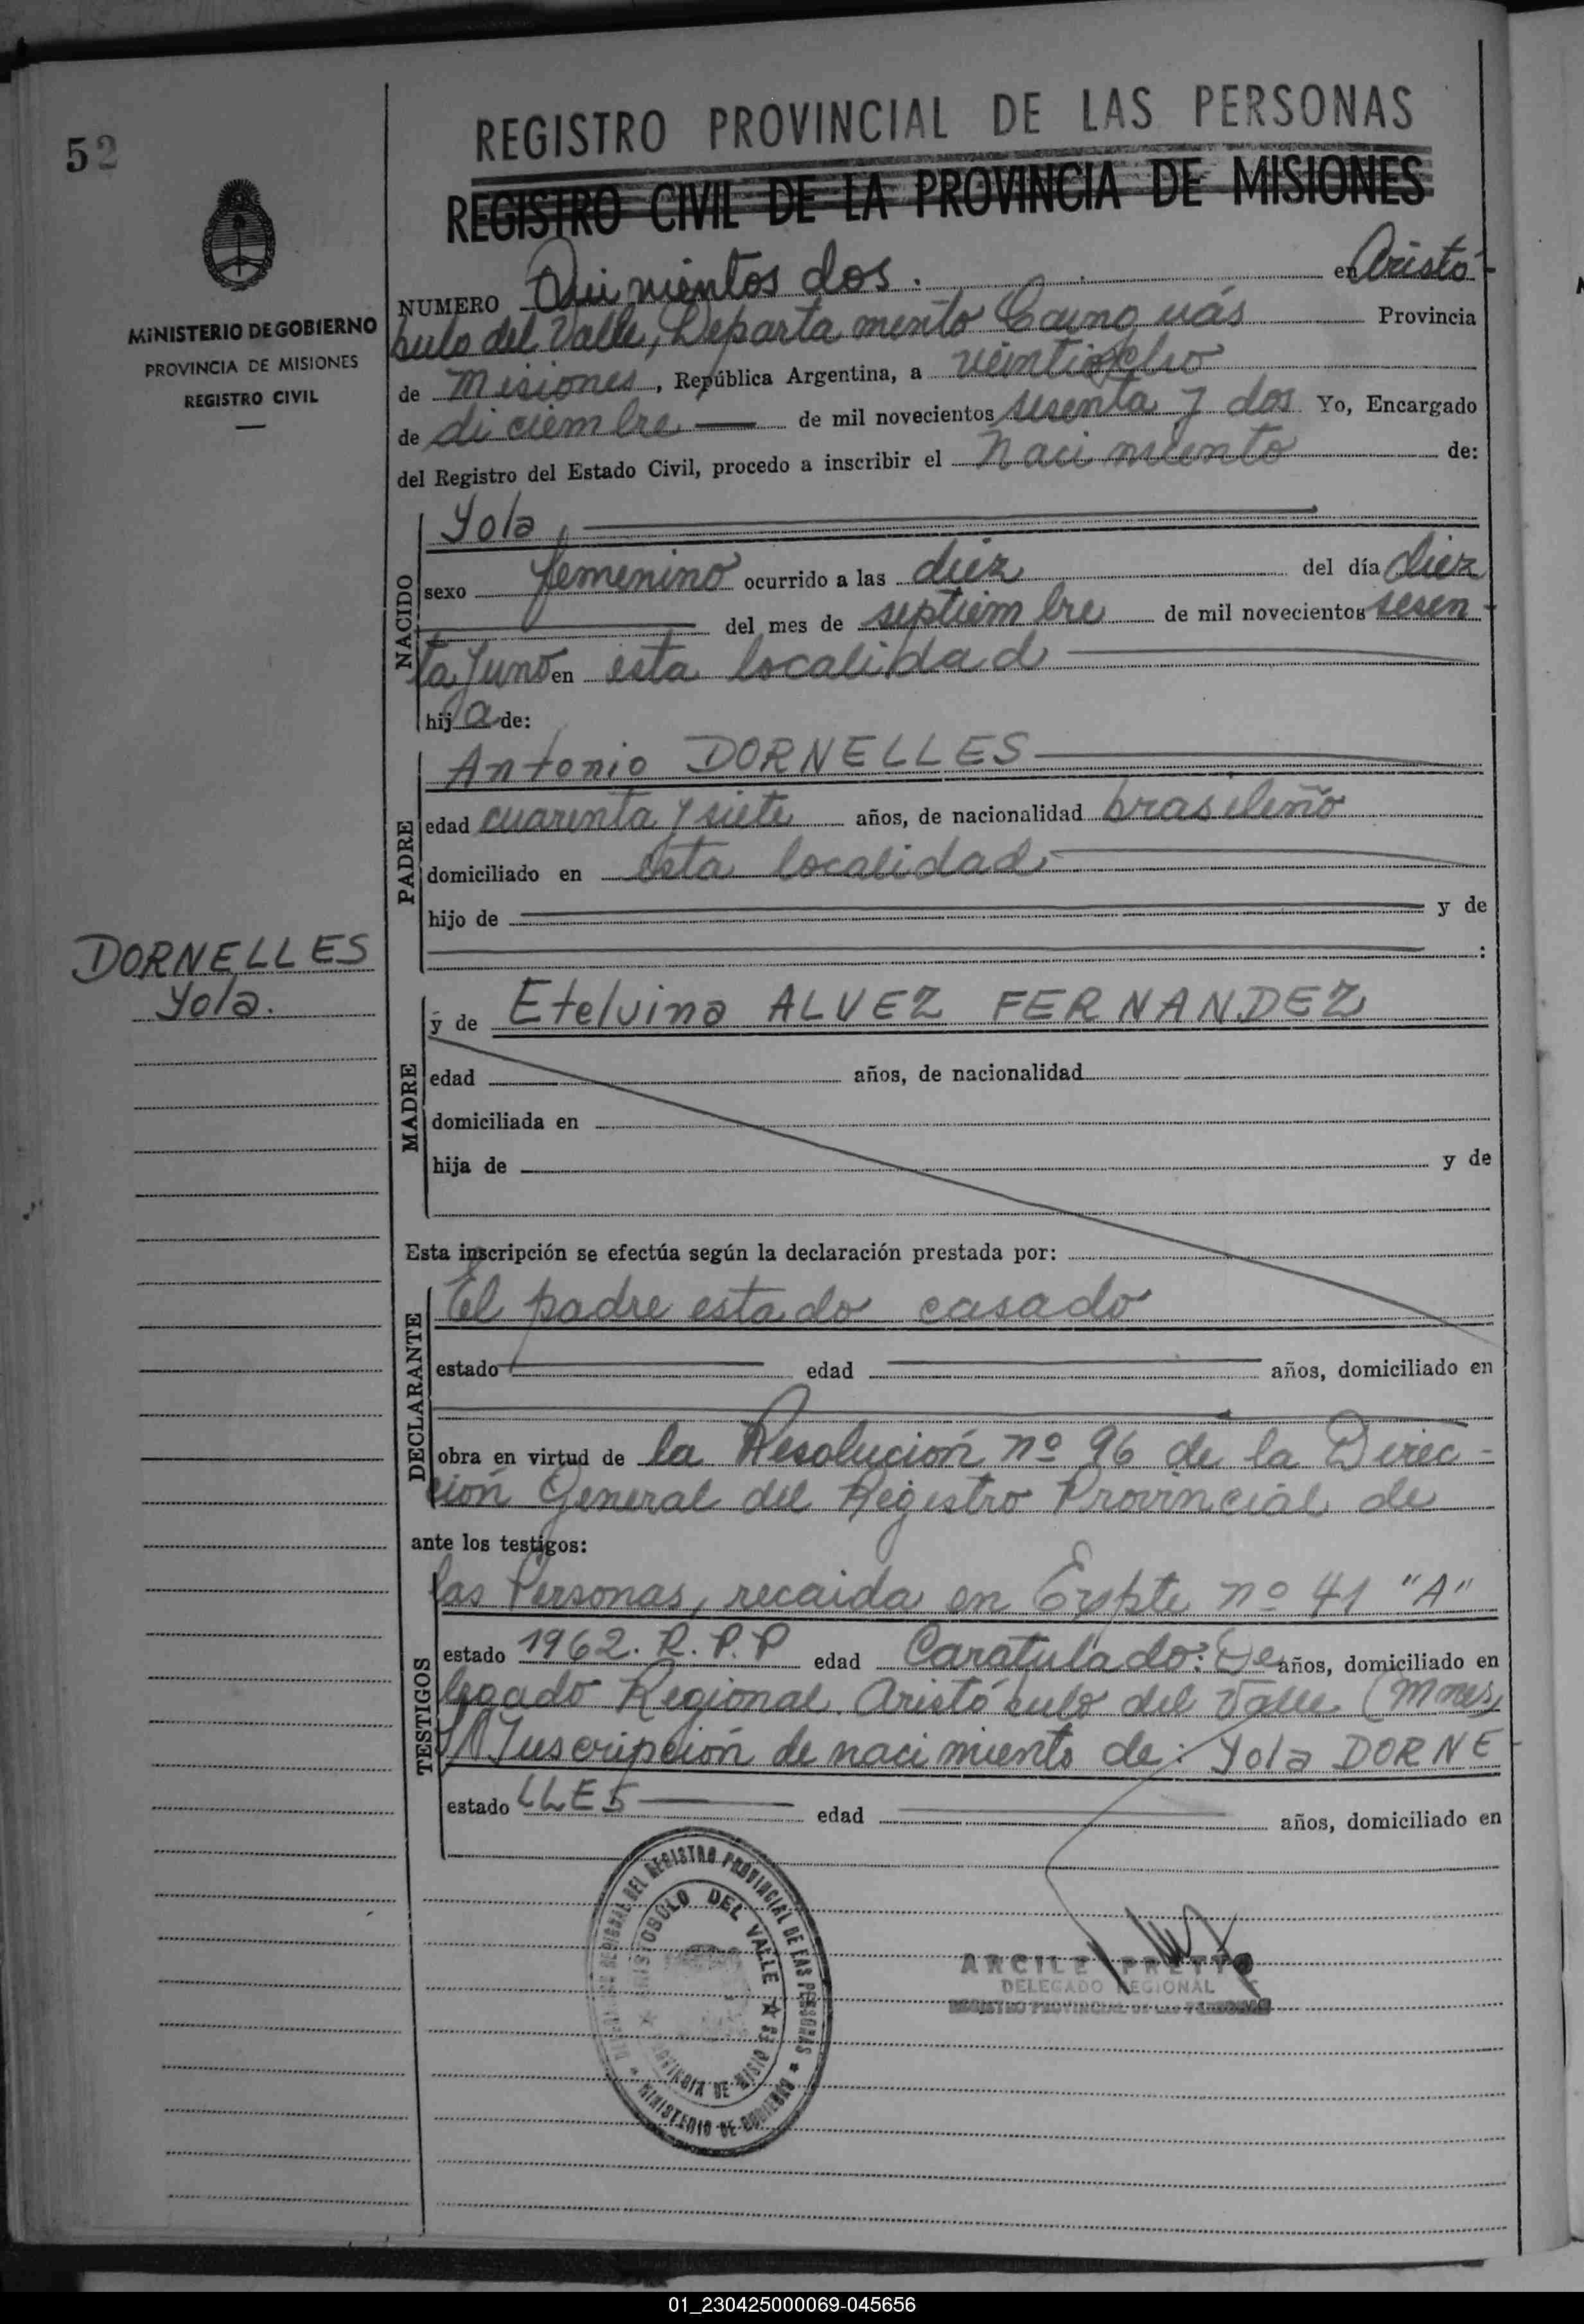 52
REGISTRO PROVINCIAL DE LAS PERSONAS
REGISTRO CIVIL DE LA PROVINCIA DE MISIONES
MINISTERIO DE GOBIERNO
PROVINCIA DE MISIONES
REGISTRO CIVIL
NUMERO Quinientos dos. en Aristó-
bulo del Valle, Departamento Cainguás Provincia
de Misiones, República Argentina, a veintiocho
de diciembre de mil novecientos sesenta y dos Yo, Encargado
del Registro del Estado Civil, procedo a inscribir el Nacimiento de:
NACIDO
Yola,
sexo femenino ocurrido a las diez del día diez
del mes de septiembre de mil novecientos sesen-
ta y uno en esta localidad
hija de:
PADRE
Antonio DORNELLES
edad cuarenta y siete años, de nacionalidad brasileño
domiciliado en esta localidad
hijo de y de
:
DORNELLES
Yola.
MADRE
y de Etelvina ALVEZ FERNANDEZ
edad años, de nacionalidad
domiciliada en
hija de y de
Esta inscripción se efectúa según la declaración prestada por:
DECLARANTE
El padre estado casado
estado edad años, domiciliado en
obra en virtud de la Resolución nº 96 de la Direc-
ción General del Registro Provincial de
ante los testigos:
TESTIGOS
las Personas, recaida en Expte nº 41 "A"
estado 1962. R. P. P edad Caratulado: De años, domiciliado en
legado Regional Aristóbulo del Valle (Mnes)
Inscripción de nacimiento de: Yola DORNE-
estado LLES edad años, domiciliado en
DEL REGISTRO PROVINCIAL DE LAS PERSONAS
ARISTOBULO DEL VALLE
PROVINCIA DE MISIONES
MINISTERIO DE GOBIERNO
ARCILE PRETTO
DELEGADO REGIONAL
REGISTRO PROVINCIAL DE LAS PERSONAS
01_230425000069-045656